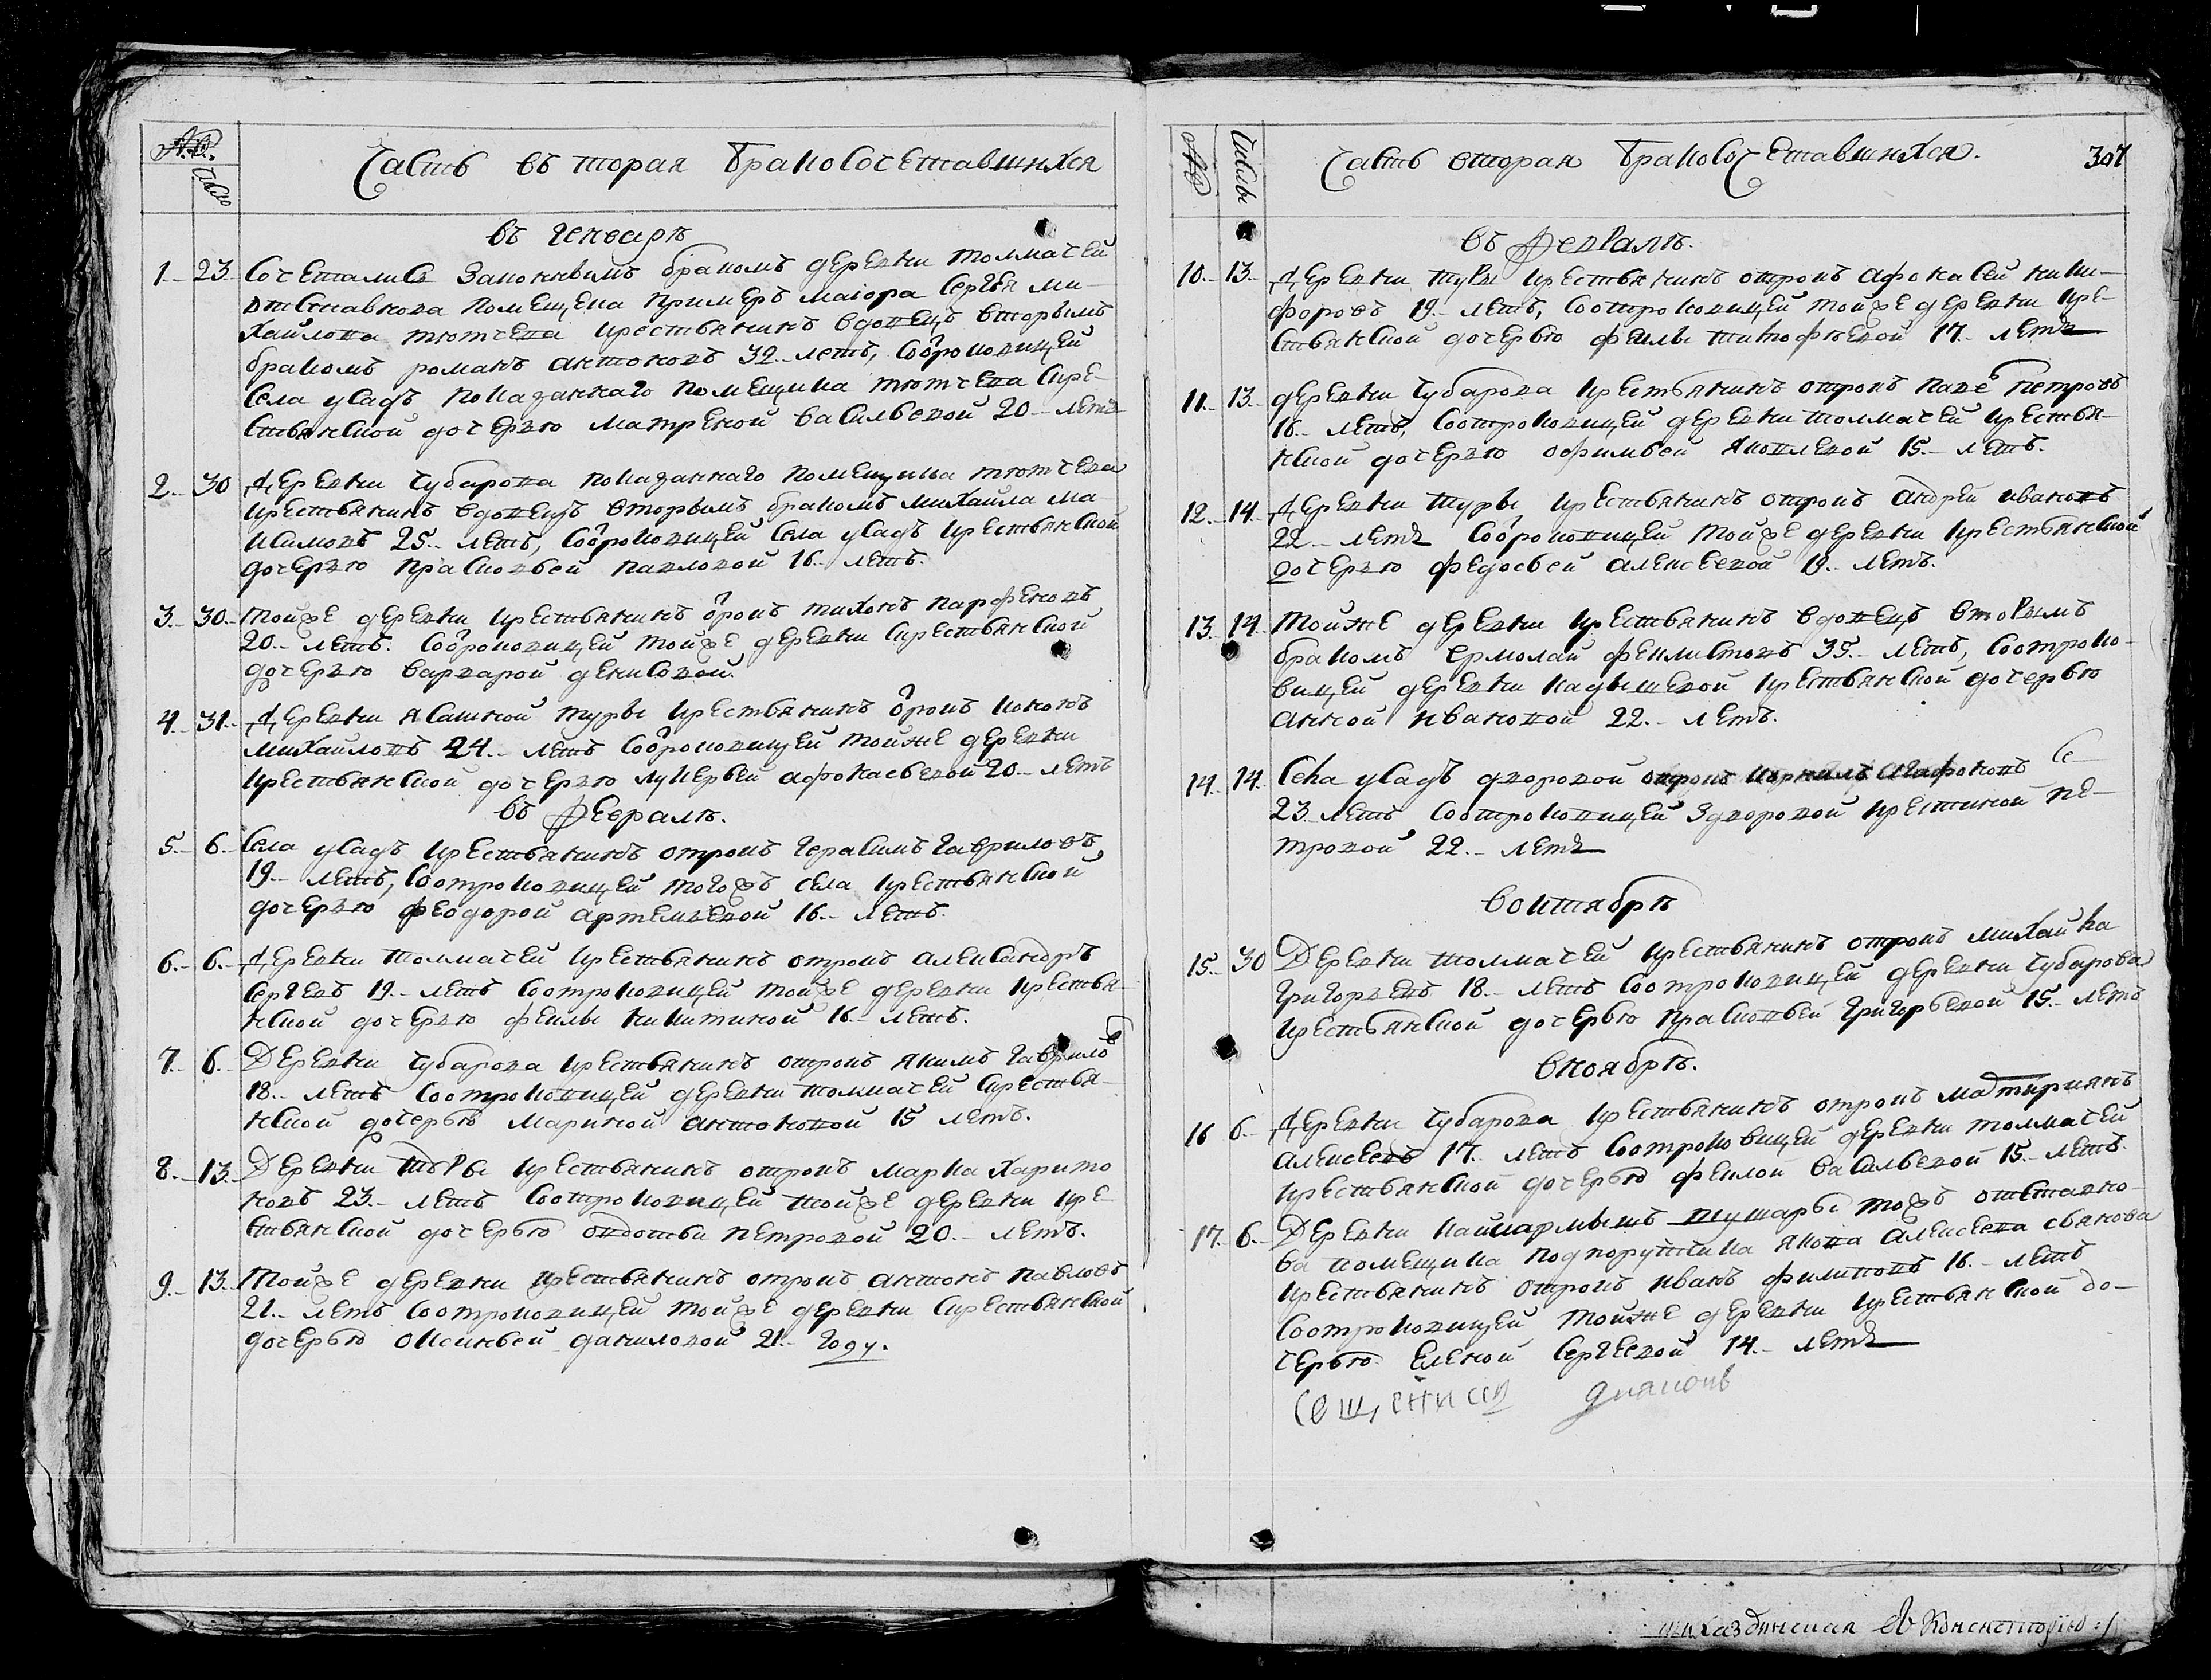 №.
Число
Часть въ торая бракосочетавшихся
въ генваре
1. 23 Сочетались законнымъ бракомъ деревни толмачей
отставнова помещека примеръ маiора Сергея ми-
хайлова тютчева крестьянинъ вдовецъ вторымъ
бракомъ романъ антоновъ 32. летъ, Соброковицей
Села усадъ показаннаго помещика тютчева Кре-
стьянской дочерью матреной васильевой 20 летъ
2. 30 Деревни Чубарова показаннаго помещика тютчева
крестьянинъ вдовецъ вторымъ бракомъ михаила ма-
ксимовъ 25. летъ, Соброковицей Села усадъ крестьянской
дочерью прасковьей павловой 16. летъ.
3. 30. Тойже деревни крестьянинъ отрокъ тихонъ парфеновъ
20. летъ. Соброковицей тойже деревни Крестьянской
дочерью варварой денисовой.
4. 31. Деревни ясашной туры крестьянинъ отрокъ кононъ
михайловъ 24. летъ Соброковицей тойже деревни
крестьянской дочерью лукерьей афонасьевой 20. летъ
въ Февралѣ.
5. 6. Села усадъ крестьянинъ отрокъ герасимъ гавриловъ
19. летъ, Соотроковицей тогожъ села крестьянской
дочерью феодорой артемьевой 16. летъ.
6. 6. Деревни толмачей крестьянинъ отрокъ александръ
сергевъ 19. летъ Соотроковицей тойже деревни крестья-
нской дочерью феклы никитиной 16. летъ.
7. 6. Деревни Чубарова крестьянинъ отрокъ якимъ гавриловъ
18. летъ Соотроковицей деревни толмачей Крестья-
нской дочерью Мариной антоновой 15 летъ.
8. 13. Деревни Туры крестьянинъ отрокъ марка харито
новъ 23. летъ Соотроковицей тойже деревни кре
стьянской дочерью овдотьи петровой 20. летъ.
9. 13. Тойже деревни крестьянинъ отрокъ антонъ павловъ
21. летъ Соотроковицей тойже деревни Крестьянской
дочерью оксиньей даниловой 21. году.
№
Число
Часть вторая бракосочетавшихся.
307
въ Февралѣ.
10. 13. Деревни туры крестьянинъ отрокъ афонасей ники-
форовъ 19. летъ, Соотроковицей тойже деревни кре-
стьянской дочерью феклы тимофѣевой 17. летъ
11. 13. деревни Чубарова крестьянинъ отрокъ паве петровъ
16. летъ, Соотроковицей деревни толмачей крестья-
нской дочерью офимьей яковлевой 15. летъ.
12. 14. Деревни туры крестьянинъ отрокъ андрей ивановъ
22. летъ Соброковицей тойже деревни крестьянской
дочерью федосьей алексеевой 19. летъ.
13. 14. Тойже деревни крестьянинъ вдовецъ вторымъ
бракомъ ермолай феклистовъ 35. летъ, Соотроко-
вицей деревни кадышевой крестьянской дочерью
анной ивановой 22. летъ.
14. 14. Села усадъ дворовой отрокъ агафоновъ
23 летъ Соотроковицей здворовой крестиной пе-
тровой 22. летъ
воктябрѣ
15. 30 Деревни толмачей крестьянинъ отрокъ михайла
григорьевъ 18. летъ Соотроковицей деревни Чубарова
крестьянской дочерью прасковьей григорьевой 15. летъ
вноябрѣ.
16 6. Деревни Чубарова крестьянинъ отрокъ
алексеевъ 17. летъ Соотроковицей деревни толмачей
крестьянской дочерью феклой васильевой 15. летъ.
17. 6. Деревни тожъ отставно-
ва помещика подпорутчика якова алексеева
крестьянинъ отрокъ иванъ филиповъ 16. летъ
Соотроковицей тойже деревни крестьянской до-
черью Еленой Сергеевой 14. летъ
дьяконъ